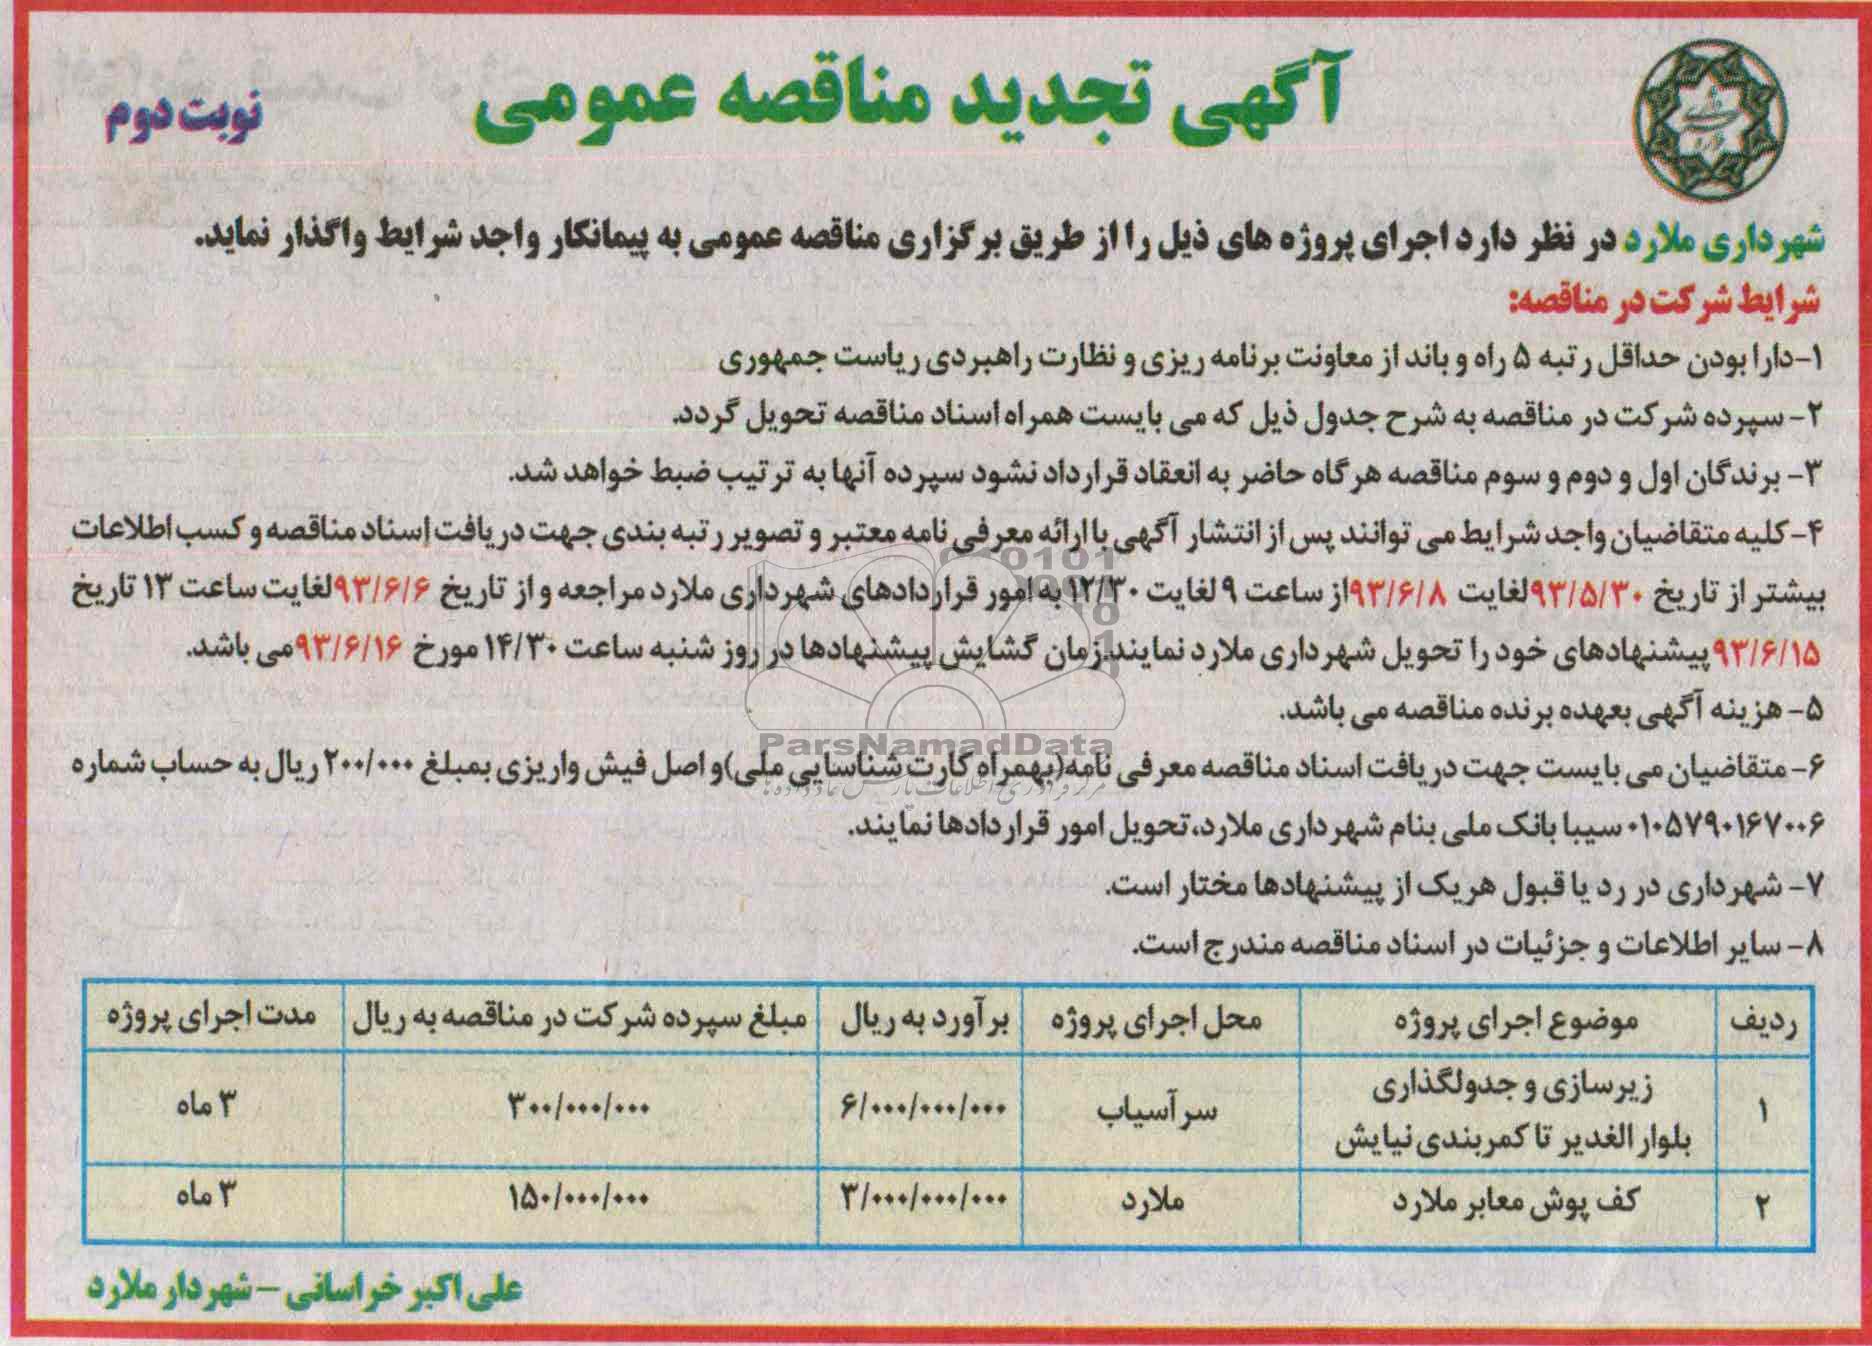 آگهی تجدید مناقصه عمومی
نوبت دوم
شهرداری ملارد در نظر دارد اجرای پروژه های ذیل را از طریق برگزاری مناقصه عمومی به پیمانکار واجد شرایط واگذار نماید.
شرایط شرکت در مناقصه:
۱-دارا بودن حداقل رتبه ۵ راه و باند از معاونت برنامه ریزی و نظارت راهبردی ریاست جمهوری
۲- سپرده شرکت در مناقصه به شرح جدول ذیل که می بایست همراه اسناد مناقصه تحویل گردد.
۳- برندگان اول و دوم و سوم مناقصه هرگاه حاضر به انعقاد قرارداد نشود سپرده آنها به ترتیب ضبط خواهد شد.
۴-کلیه متقاضیان واجد شرایط می توانند پس از انتشار آگهی با ارائه معرفی نامه معتبر و تصویر رتبه بندی جهت دریافت اسناد مناقصه و کسب اطلاعات
بیشتر از تاریخ ۹۳/۵/۳۰لغایت ۹۳/۶/۸از ساعت ۹ لغایت ۱۲/۳۰ به امور قراردادهای شهرداری ملارد مراجعه و از تاریخ ۹۳/۶/۶لغایت ساعت ۱۳ تاریخ
۹۳/۶/۱۵پیشنهادهای خود را تحویل شهرداری ملارد نمایند.زمان گشایش پیشنهادها در روز شنبه ساعت ۱۴/۳۰ مورخ ۹۳/۶/۱۶می باشد.
۵- هزینه آگهی بعهده برنده مناقصه می باشد.
ParsNamadData
۶- متقاضیان می بایست جهت دریافت اسناد مناقصه معرفی نامه(بهمراه کارت شناسایی ملی)و اصل فیش واریزی بمبلغ ۲۰۰/۰۰۰ ریال به حساب شماره
مرکز فرآوری اطلاعات پارس نماد داده ها
۰۱۰۵۷۹۰۱۶۷۰۰۶ سیبا بانک ملی بنام شهرداری ملارد،تحویل امور قراردادها نمایند.
۷- شهرداری در رد یا قبول هریک از پیشنهادها مختار است.
۸- سایر اطلاعات و جزئیات در اسناد مناقصه مندرج است.
ردیف موضوع اجرای پروژه محل اجرای پروژه برآورد به ریال مبلغ سپرده شرکت در مناقصه به ریال مدت اجرای پروژه
۱ زیرسازی و جدولگذاری بلوار الغدیر تا کمربندی نیایش سرآسیاب ۶/۰۰۰/۰۰۰/۰۰۰ ۳۰۰/۰۰۰/۰۰۰ ۳ ماه
۲ کف پوش معابر ملارد ملارد ۳/۰۰۰/۰۰۰/۰۰۰ ۱۵۰/۰۰۰/۰۰۰ ۳ ماه
علی اکبر خراسانی – شهردار ملارد